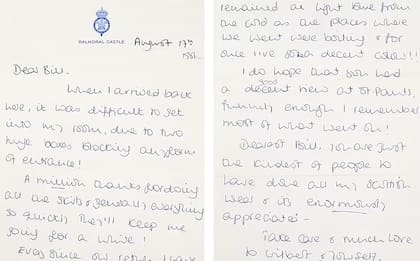 BALMORAL CASTLE
August 17th
1981.
Dear Bill.
When I arrived back
here, it was difficult to get
into my room, due to two
huge boxes blocking any form
of entrance!
A million thanks for doing
all the skirts & generally everything
so quickly. They'll keep me
going for a while!
Ever since our return I have
remained a light blue from
the cold as the places where
we went were boiling & for
once I've got a decent colour!!!
I do hope that you had
a decent good view at St Pauls,
funnily enough I remember
most of what went on!
Dearest Bill, you are just
the kindest of people to
have done all my
wear & its enormously
appreciated -
Take care & much love
to Gilbert & Yourself,